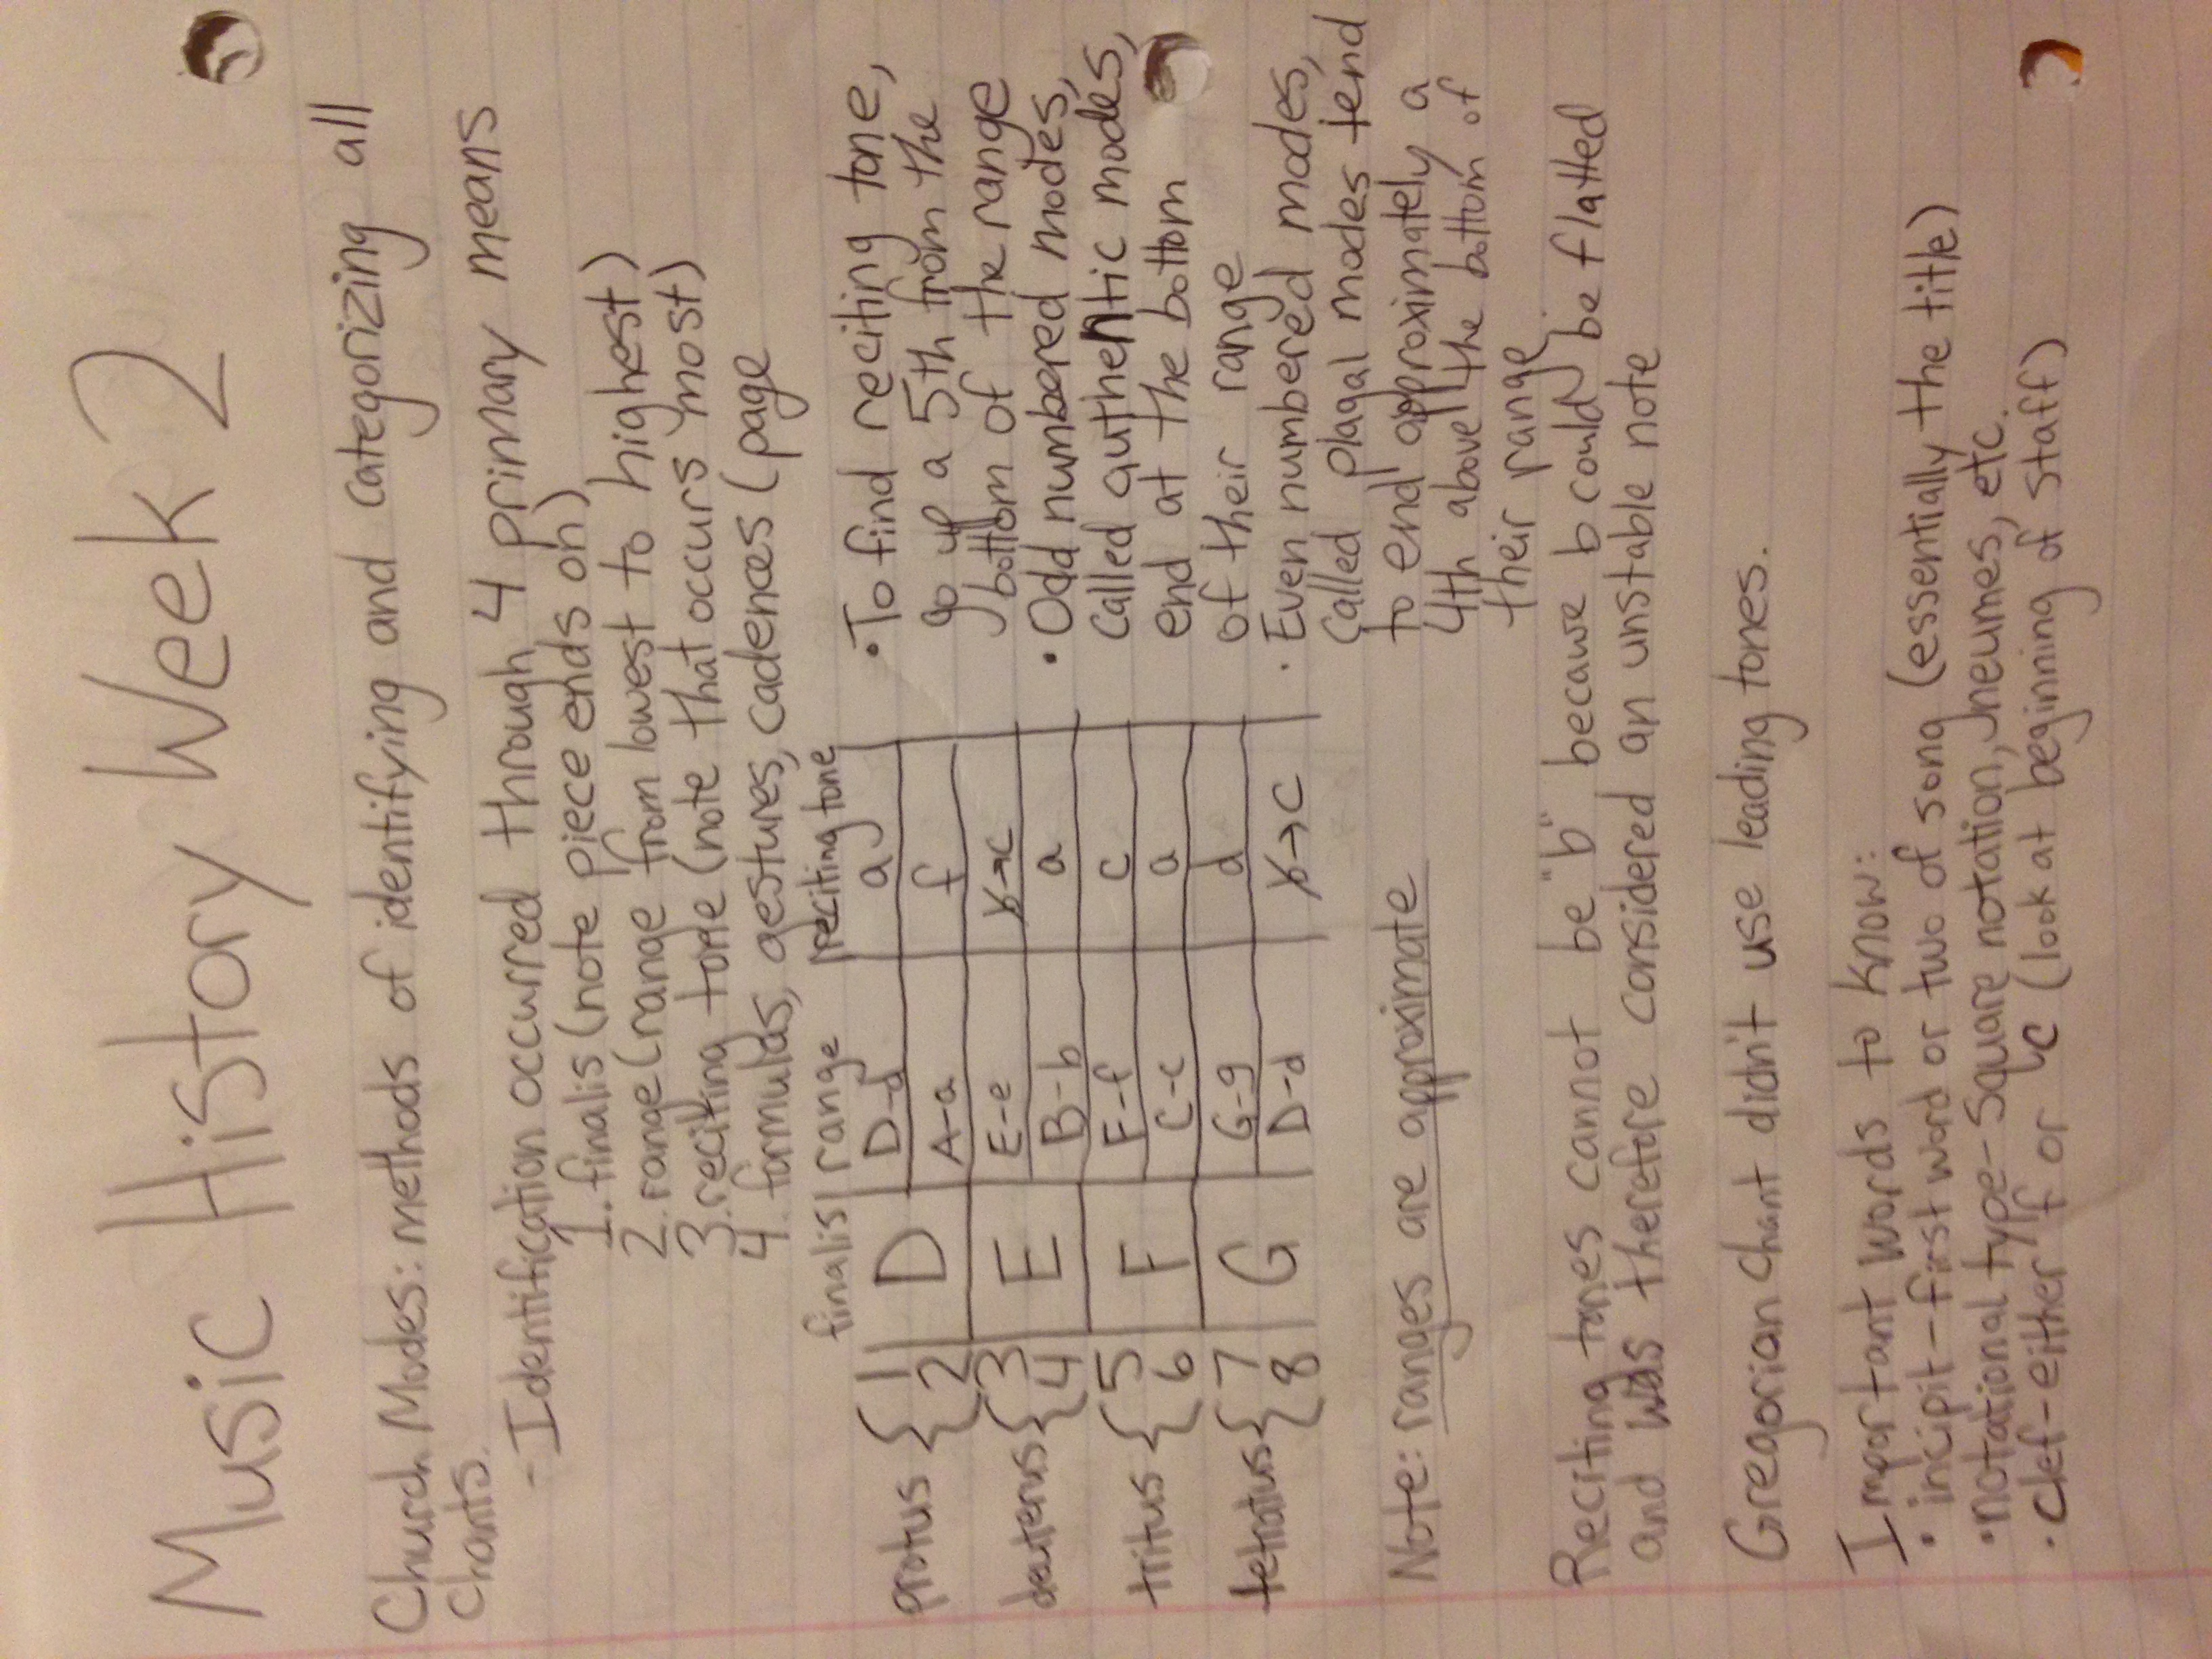 Music History Week 2
Church Modes: methods of identifying and categorizing all
chants.
- Identification occurred through 4 primary means
1. finalis (note piece ends on)
2. range (range from lowest to highest)
3. reciting tone (note that occurs most)
4. formulas, gestures, cadences (page
finalis range reciting tone
protus { 1 D D-d a
2 A-a f
deuterus { 3 E E-e b→c
4 B-b a
tritus { 5 F F-f c
6 C-c a
tetratus { 7 G G-g d
8 D-d b→c
• To find reciting tone,
go up a 5th from the
bottom of the range
• Odd numbered modes,
called authentic modes,
end at the bottom
of their range
• Even numbered modes,
called plagal modes tend
to end approximately a
4th above the bottom of
their range
Note: ranges are approximate
Reciting tones cannot be "b" because b could be flatted
and was therefore considered an unstable note
Gregorian chant didn't use leading tones.
Important words to know:
• incipit - first word or two of song (essentially the title)
• notational type - Square notation, neumes, etc.
• clef - either f or c (look at beginning of staff)